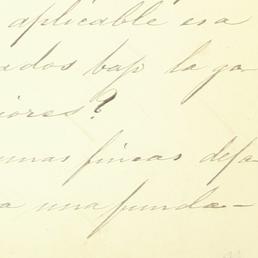 aplicable esa
ados bajo la ga
iores?
unas fincas deja
a una funda-